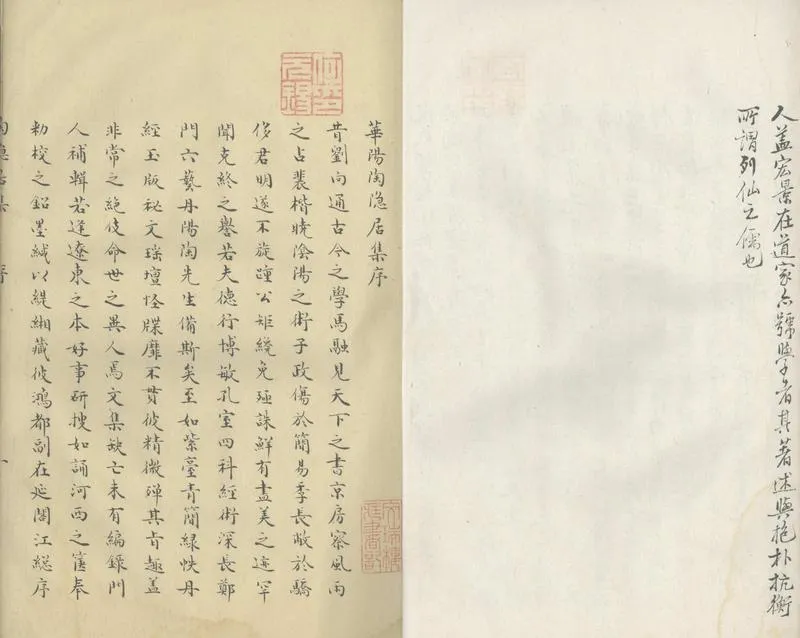 人盖宏景在道家亦號學者其著述與抱朴抗衡
所謂列仙之儒也
華陽陶隐居集序
昔劉向通古今之學馬融見天下之書京房察風雨
之占裴楷曉陰陽之術子政傷於簡易季長敝於驕
侈君明遂不旋踵公矩纔免殛誅鮮有盡美之迹罕
聞克終之譽若夫德行博敏孔室四科經術深長鄭
門六藝丹陽陶先生備斯矣至如紫臺青簡綠帙丹
經玉版秘文瑶壇怪牒靡不貫彼精微殫其旨趣盖
非常之絶伎命世之異人焉文集缺亡未有編錄門
人補輯若逢遼東之本好事研搜如誦河西之篋奉
勑校之鉛墨緘以緹緗藏彼鴻都副在延閣江総序